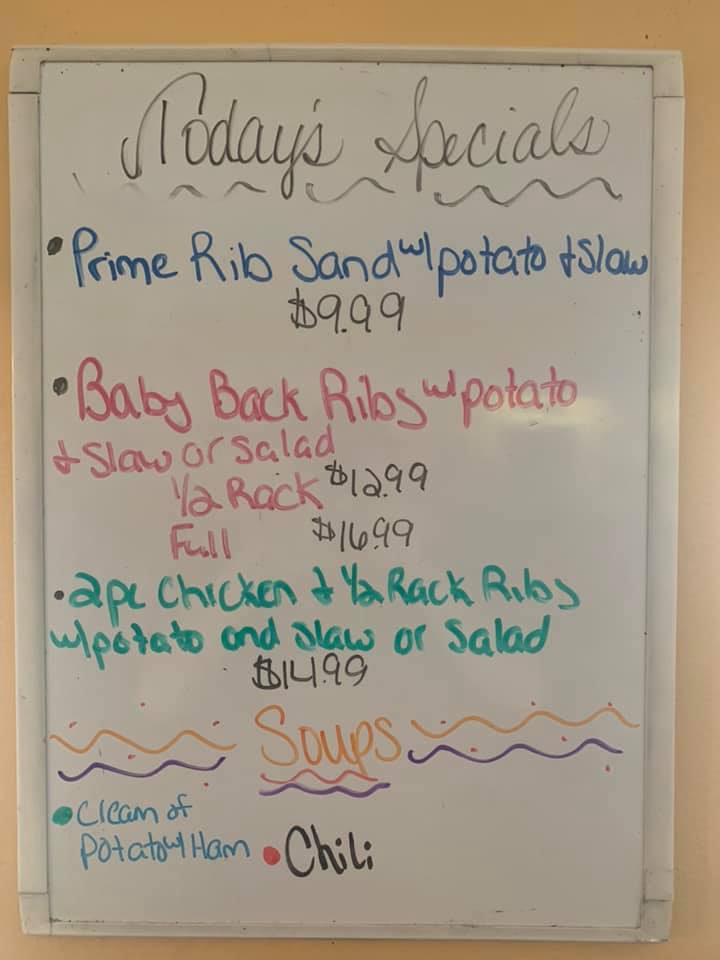 Today's Specials
• Prime Rib Sand w/potato + Slaw
$9.99
• Baby Back Ribs w/potato
+ Slaw or Salad
1/2 Rack $12.99
Full $16.99
• 2pc Chicken + 1/2 Rack Ribs
w/potato and slaw or Salad
$14.99
Soups
• Cream of
Potato w/ Ham • Chili